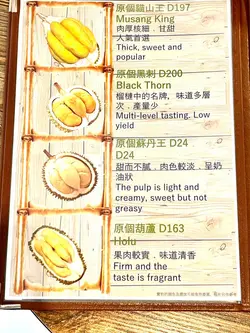 原個貓山王 D197
Musang King
肉厚核細，甘甜
人氣首選
Thick, sweet and
popular
原個黑刺 D200
Black Thorn
榴槤中的名牌，味道多層
次，產量少
Multi-level tasting. Low
yield
原個蘇丹王 D24
D24
甜而不膩，肉色較淡，呈奶
油狀
The pulp is light and
creamy, sweet but not
greasy
原個葫蘆 D163
Holu
果肉較實，味道清香
Firm and the
taste is fragrant